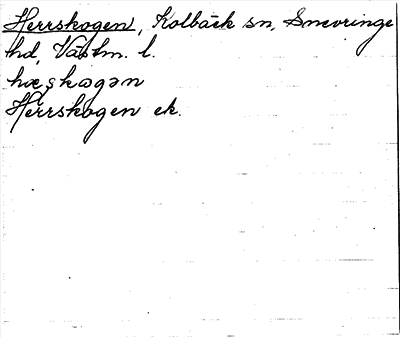 Herrskogen, Kolbäck sn, Snevringe
hd, Västm. l.
hæʂkωgən
Herrskogen ek.